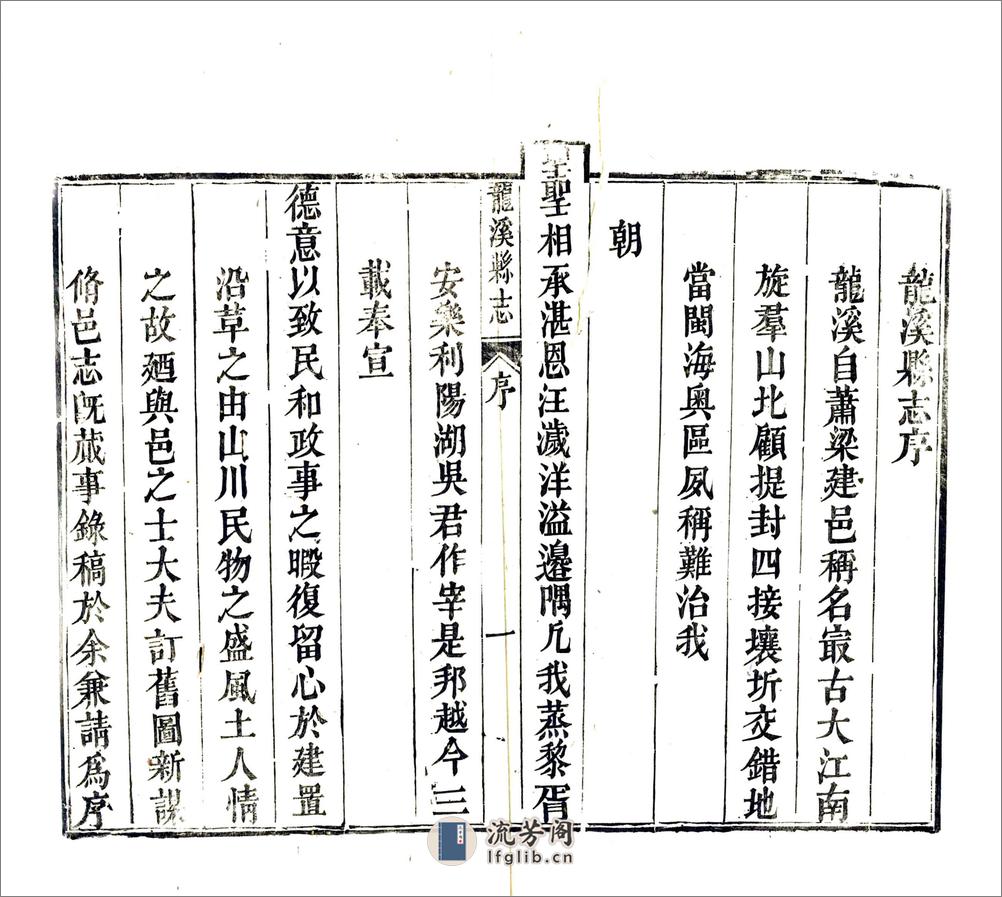 龍溪縣志序
龍溪自蕭梁建邑稱名㝡古大江南
旋羣山北顧提封四接壤圻交錯地
當閩海奧區夙稱難治我
朝
聖聖相承湛恩汪濊洋溢邉隅凢我蒸黎胥
龍溪縣志 序 一
安樂利陽湖吳君作宰是邦越今三
載奉宣
德意以致民和政事之暇復留心於建置
沿革之由山川民物之盛風土人情
之故廼與邑之士大夫訂舊圖新謀
脩邑志旣蕆事錄稿於余兼請爲序
流芳阁
lfglib.cn